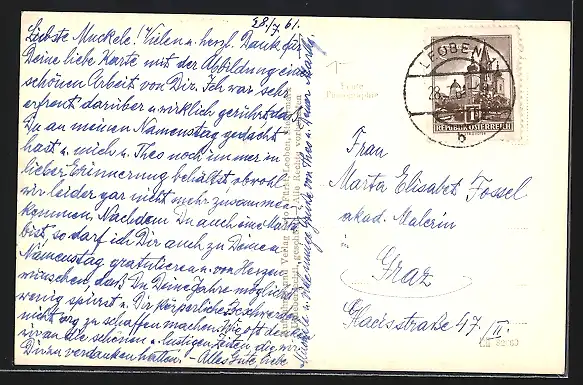 28./7. 61.
Liebste Muckele! Vielen u. herzl. Dank für
Deine liebe Karte mit der Abbildung einer
schönen Arbeit von Dir. Ich war sehr
erfreut darüber u. wirklich gerührt, dass
Du an meinen Namenstag gedacht
hast u. mich u. Theo noch immer in
lieber Erinnerung behältst, obwohl
wir leider gar nicht mehr zusammen-
kommen. Nachdem Du auch eine Marta
bist, so darf ich Dir auch zu Deinem
Namenstag gratulieren u. von Herzen
wünschen, dass Du Deine Jahre möglichst
wenig spürst u. Dir körperliche Beschwerden
nicht arg zu schaffen machen. Wie oft denken
wir an die schönen u. lustigen Zeiten, die wir
Dir zu verdanken hatten! – Alles Gute, liebe
Echte
Photographie
LEOBEN 1
28. 7. 61
b
REPUBLIK ÖSTERREICH
Frau
Marta Elisabet Fossel
akad. Malerin
Graz
47. II.